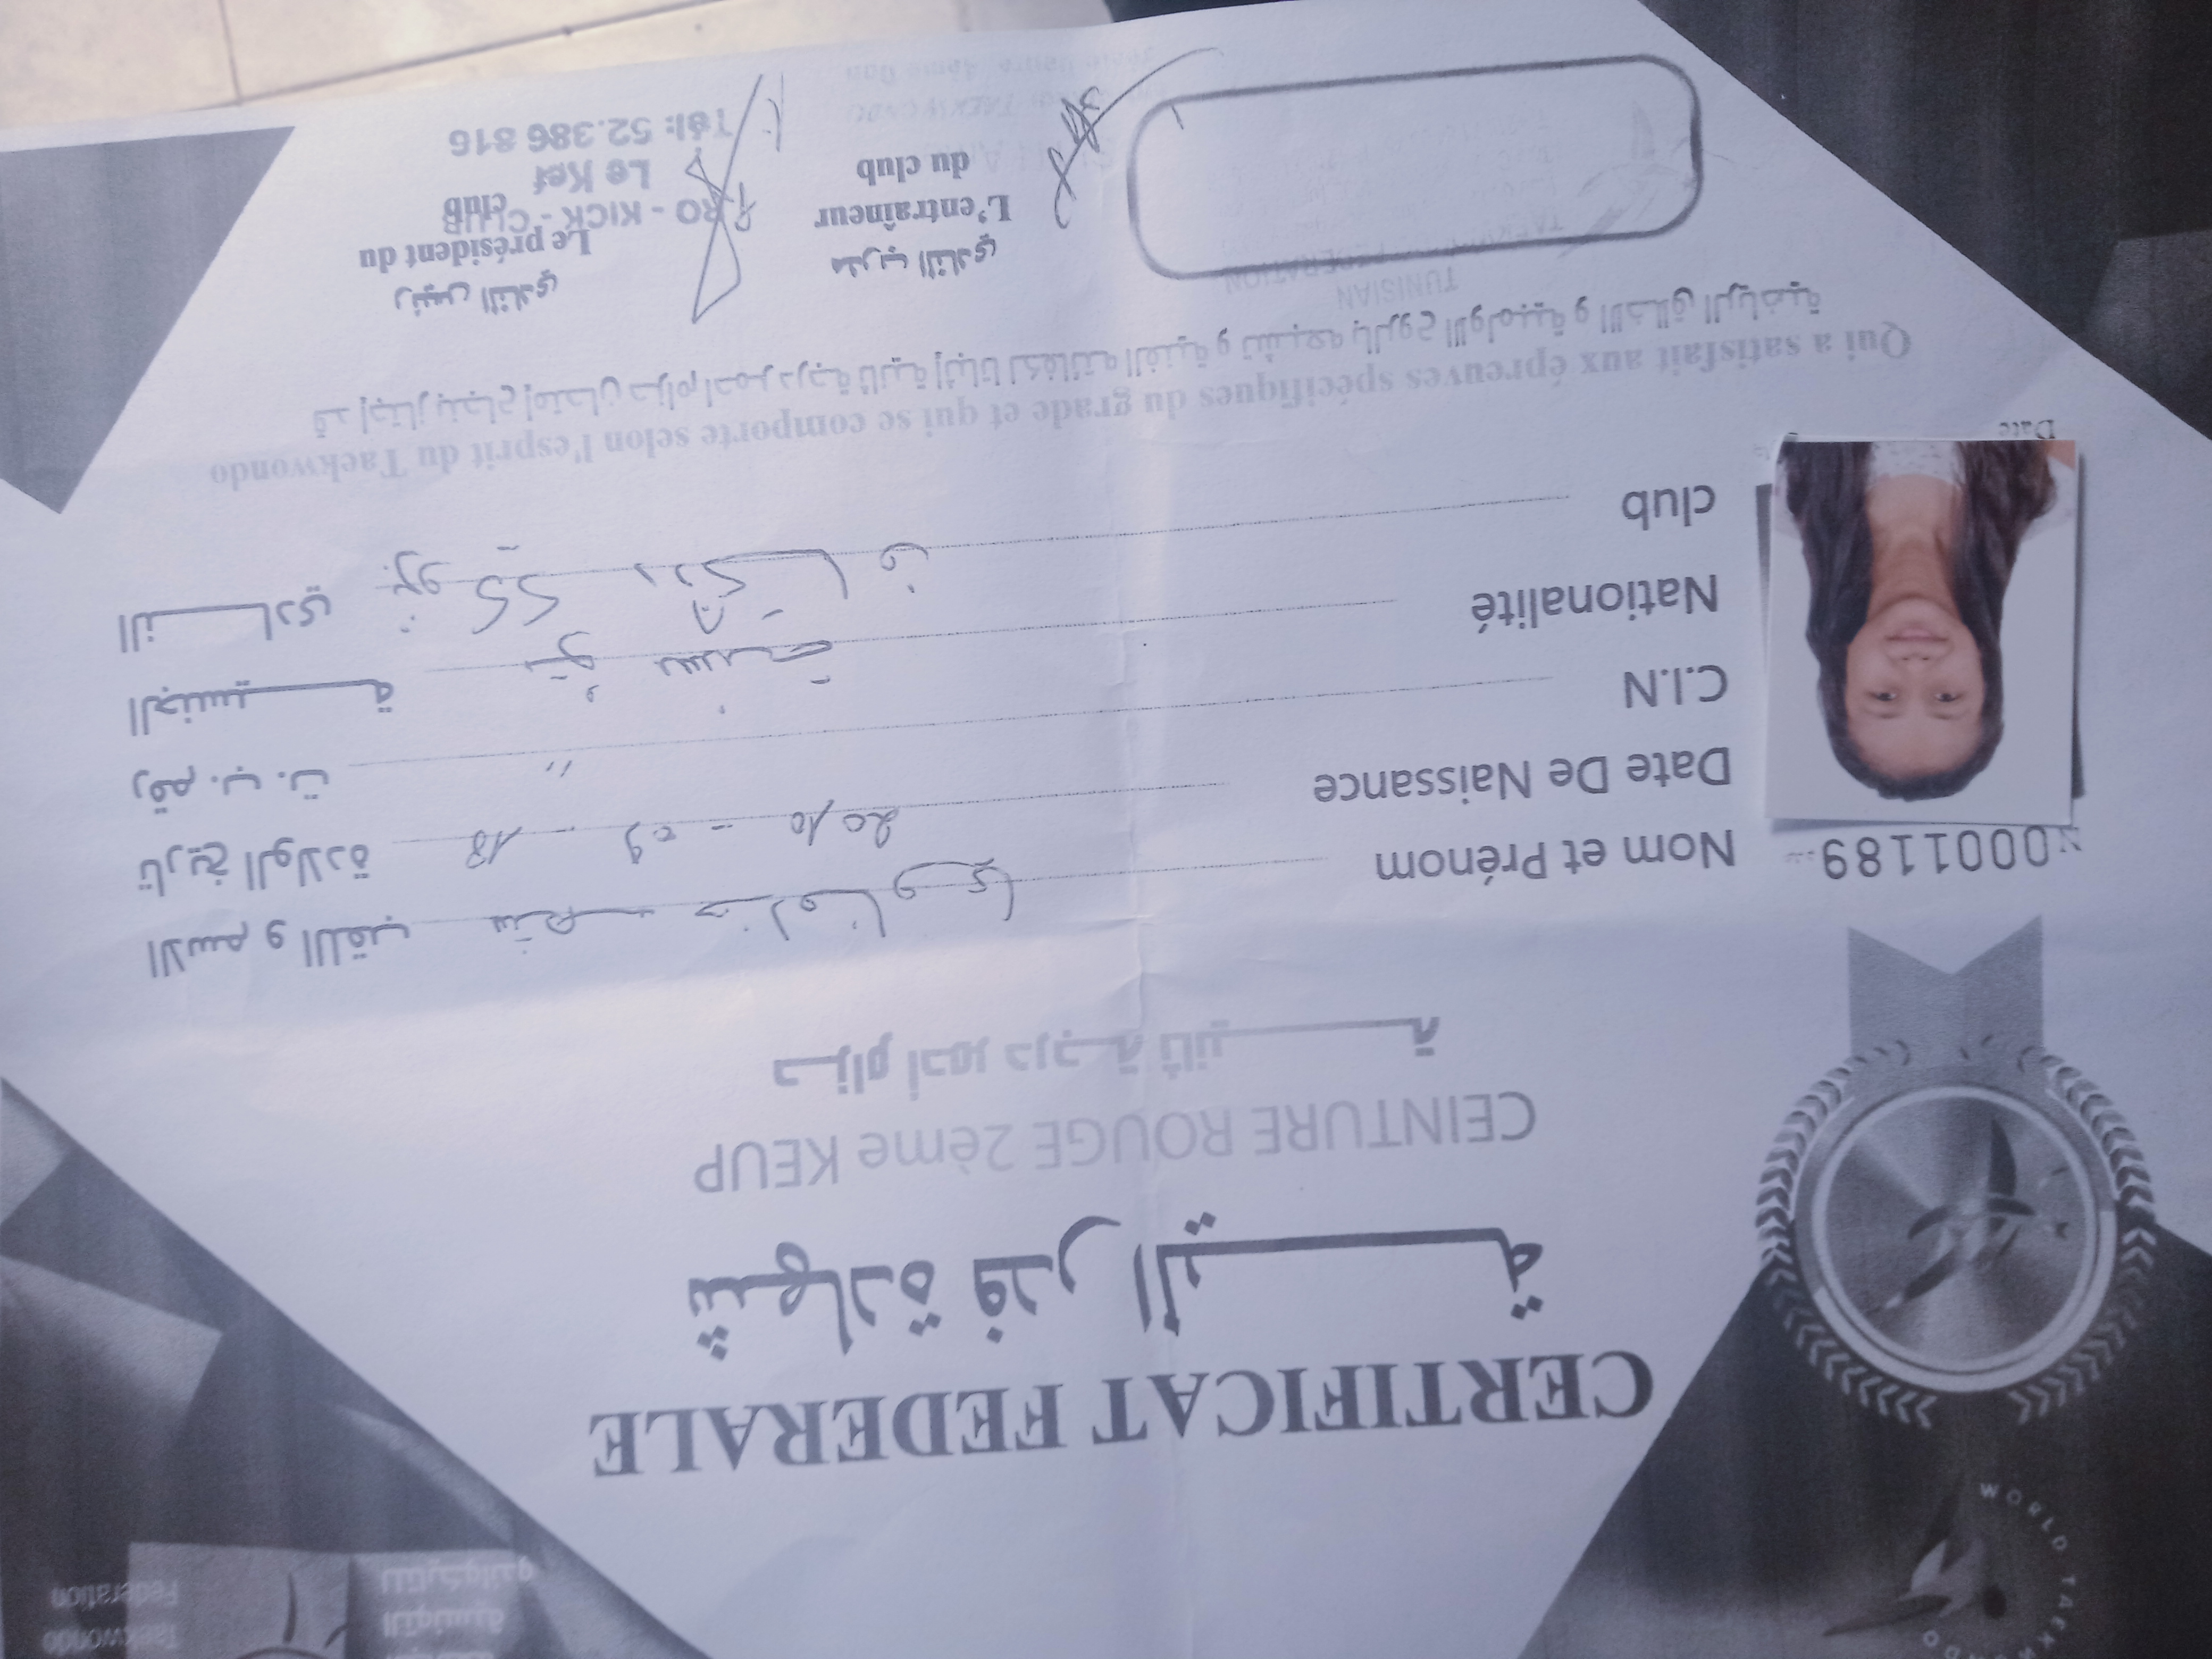 WORLD TAEKWONDO
التونسية
للتايكواندو
Taekwondo
Federation
CERTIFICAT FEDERALE
شهادة فدراليـــــة
CEINTURE ROUGE 2ème KEUP
حزام أحمر درجة ثانيـــــة
N 0001189
Nom et Prénom الاسم و اللقب
Date De Naissance 2010 - 09 - 18 تاريخ الولادة
C.I.N " رقم ب. ت.
Nationalité تونسية الجنسيـــة
club النـــادي
Date
Qui a satisfait aux épreuves spécifiques du grade et qui se comporte selon l'esprit du Taekwondo
قد إجتاز بنجاح إمتحان حزام احمر درجة ثانية إثباتا لكفائته الفنية و تشبعه بالروح الاولمبية و الاخلاق الرياضية
TUNISIAN
TAEKWONDO FEDERATION
مدرب النادي
L'entraîneur
du club
رئيس النادي
Le président du
club
PRO - KICK - CLUB
Le Kef
Tél: 52.386 816